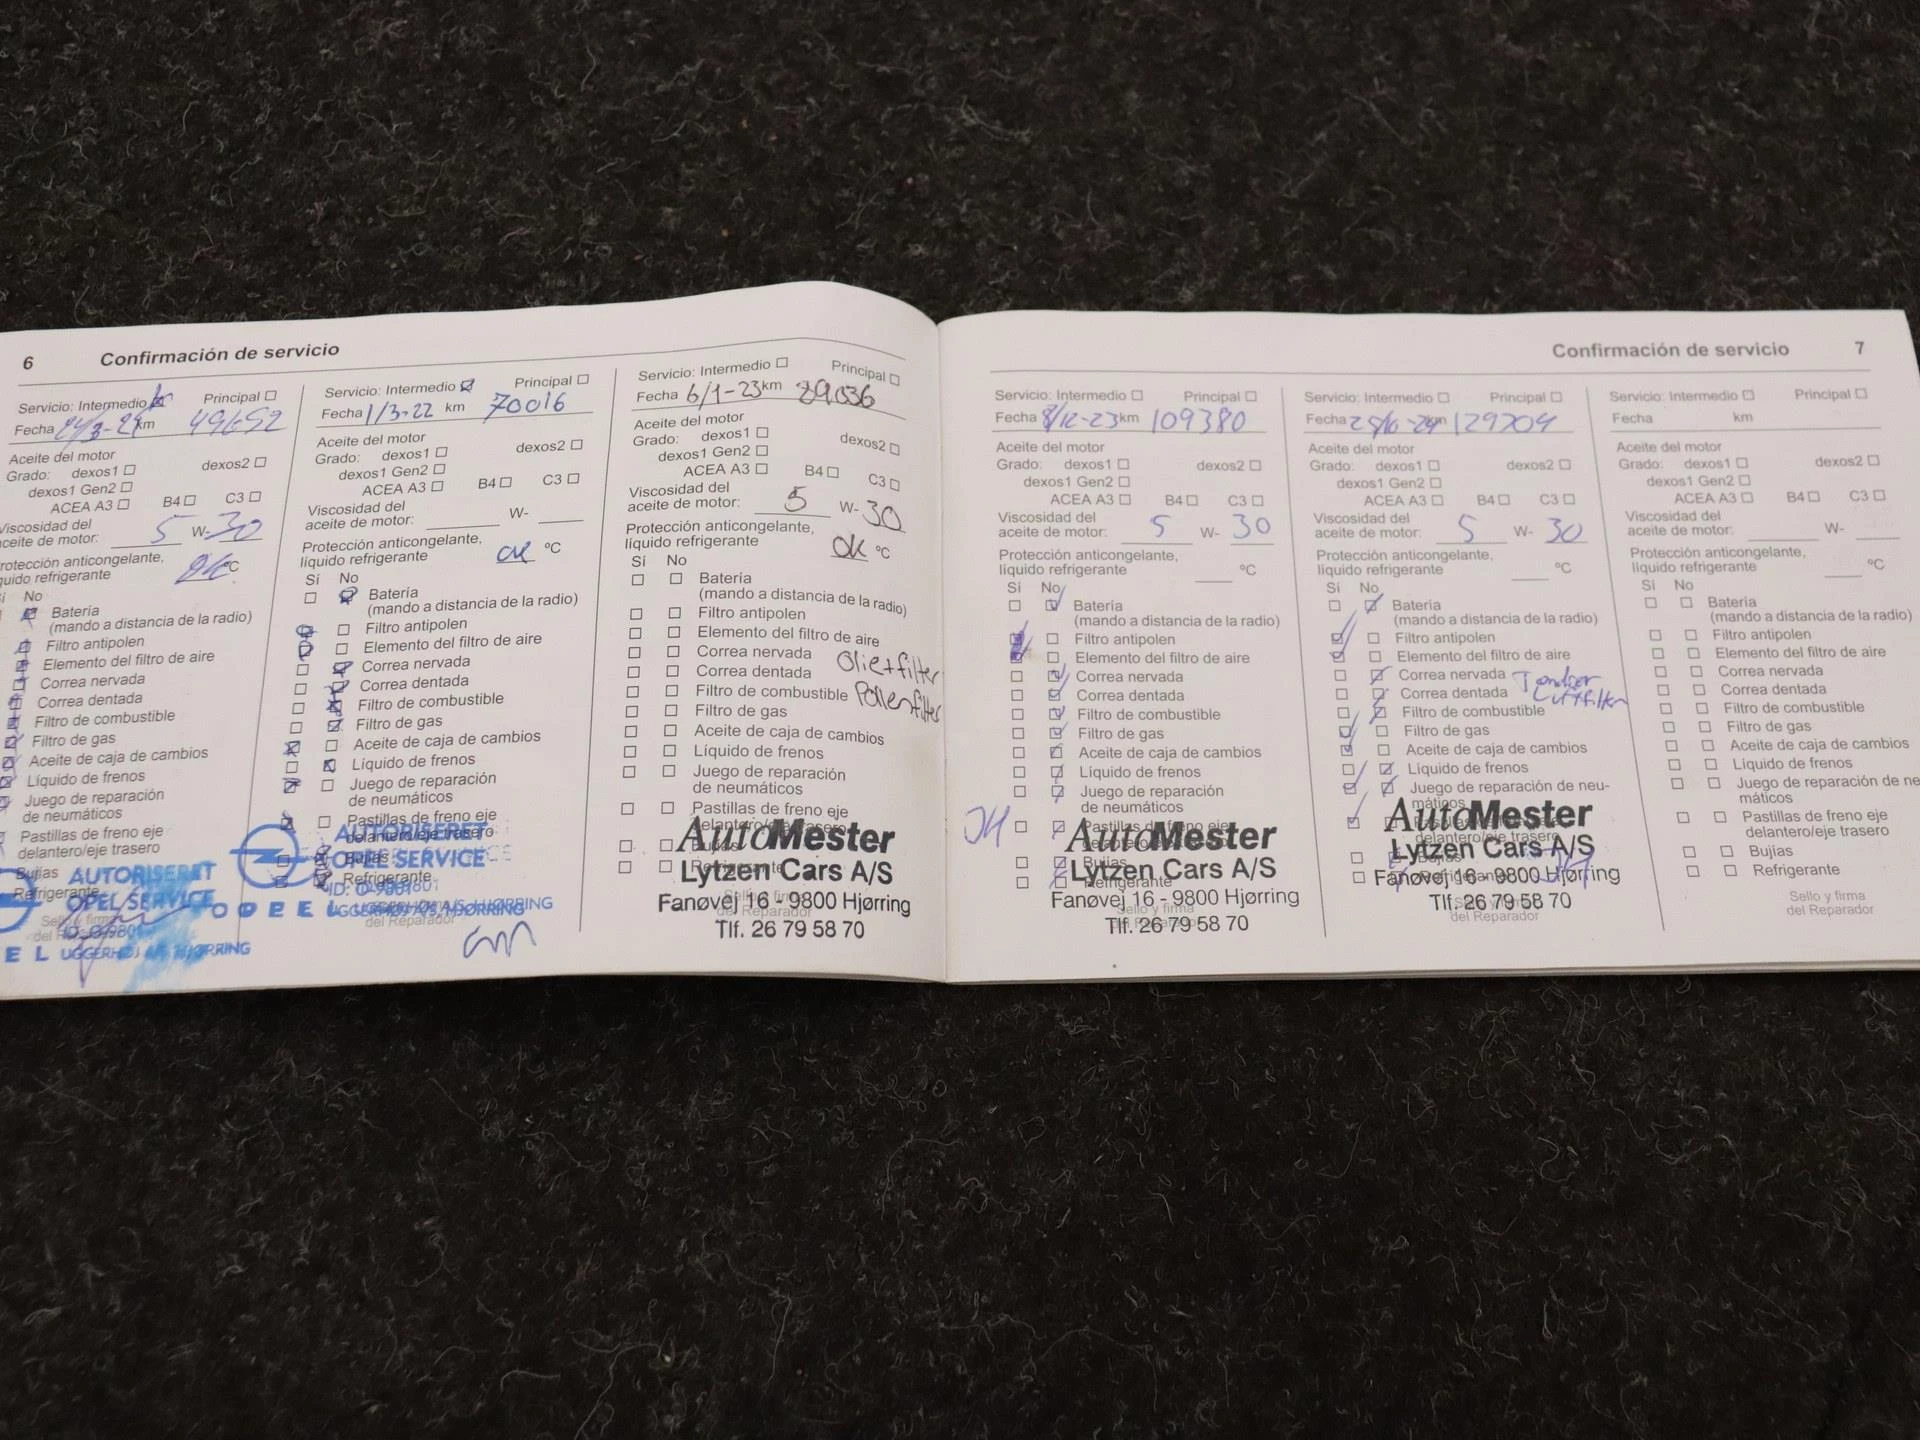 6 Confirmación de servicio
Servicio: Intermedio Principal
Fecha km 49652
Aceite del motor
Grado: dexos1 dexos2
dexos1 Gen2
ACEA A3 B4 C3
Viscosidad del
aceite de motor: 5 W-30
Protección anticongelante,
líquido refrigerante °C
No
Batería
(mando a distancia de la radio)
Filtro antipolen
Elemento del filtro de aire
Correa nervada
Correa dentada
Filtro de combustible
Filtro de gas
Aceite de caja de cambios
Líquido de frenos
Juego de reparación
de neumáticos
Pastillas de freno eje
delantero/eje trasero
Bujías
Refrigerante
AUTORISERET
OPEL SERVICE
UGGERHØJ A/S, HJØRRING
Servicio: Intermedio Principal
Fecha 1/3-22 km 70016
Aceite del motor
Grado: dexos1 dexos2
dexos1 Gen2
ACEA A3 B4 C3
Viscosidad del
aceite de motor: W-
Protección anticongelante,
líquido refrigerante ok °C
Sí No
Batería
(mando a distancia de la radio)
Filtro antipolen
Elemento del filtro de aire
Correa nervada
Correa dentada
Filtro de combustible
Filtro de gas
Aceite de caja de cambios
Líquido de frenos
Juego de reparación
de neumáticos
Pastillas de freno eje
delantero/eje trasero
Bujías
Refrigerante
AUTORISERET
OPEL SERVICE
OPEL
UGGERHØJ A/S, HJØRRING
del Reparador
Servicio: Intermedio Principal
Fecha 6/1-23 km 89.036
Aceite del motor
Grado: dexos1 dexos2
dexos1 Gen2
ACEA A3 B4 C3
Viscosidad del
aceite de motor: 5 W-30
Protección anticongelante,
líquido refrigerante OK °C
Sí No
Batería
(mando a distancia de la radio)
Filtro antipolen
Elemento del filtro de aire
Correa nervada
Olie+filter
Correa dentada
Filtro de combustible
Pollenfilter
Filtro de gas
Aceite de caja de cambios
Líquido de frenos
Juego de reparación
de neumáticos
Pastillas de freno eje
delantero/eje trasero
Bujías
Refrigerante
AutoMester
Lytzen Cars A/S
Fanøvej 16 - 9800 Hjørring
Tlf. 26 79 58 70
Sello y firma
del Reparador
Confirmación de servicio 7
Servicio: Intermedio Principal
Fecha 8/12-23 km 109380
Aceite del motor
Grado: dexos1 dexos2
dexos1 Gen2
ACEA A3 B4 C3
Viscosidad del
aceite de motor: 5 W- 30
Protección anticongelante,
líquido refrigerante °C
Sí No
Batería
(mando a distancia de la radio)
Filtro antipolen
Elemento del filtro de aire
Correa nervada
Correa dentada
Filtro de combustible
Filtro de gas
Aceite de caja de cambios
Líquido de frenos
Juego de reparación
de neumáticos
Pastillas de freno eje
Bujías
Refrigerante
AutoMester
Lytzen Cars A/S
Fanøvej 16 - 9800 Hjørring
Tlf. 26 79 58 70
Sello y firma
del Reparador
Servicio: Intermedio Principal
Fecha km 129704
Aceite del motor
Grado: dexos1 dexos2
dexos1 Gen2
ACEA A3 B4 C3
Viscosidad del
aceite de motor: 5 W- 30
Protección anticongelante,
líquido refrigerante °C
Sí No
Batería
(mando a distancia de la radio)
Filtro antipolen
Elemento del filtro de aire
Correa nervada
Correa dentada
Luftfilter
Filtro de combustible
Filtro de gas
Aceite de caja de cambios
Líquido de frenos
Juego de reparación de neu-
máticos
delantero/eje trasero
Bujías
AutoMester
Lytzen Cars A/S
Fanøvej 16 - 9800 Hjørring
Tlf. 26 79 58 70
del Reparador
Servicio: Intermedio Principal
Fecha km
Aceite del motor
Grado: dexos1 dexos2
dexos1 Gen2
ACEA A3 B4 C3
Viscosidad del
aceite de motor: W-
Protección anticongelante,
líquido refrigerante °C
Sí No
Batería
(mando a distancia de la radio)
Filtro antipolen
Elemento del filtro de aire
Correa nervada
Correa dentada
Filtro de combustible
Filtro de gas
Aceite de caja de cambios
Líquido de frenos
Juego de reparación de ne
máticos
Pastillas de freno eje
delantero/eje trasero
Bujías
Refrigerante
Sello y firma
del Reparador